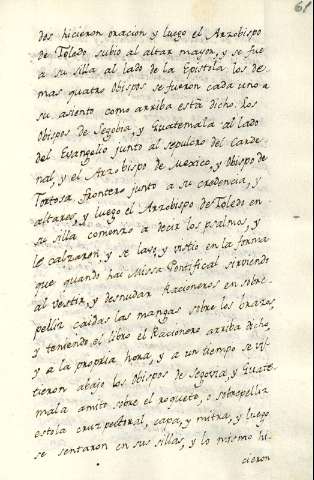 61
dos hicieron oracion y luego el Arzobispo
de Toledo subio al altar mayor, y se fue
a su silla al lado de la Epistola los de
mas quatro Obispos se fueron cada uno a
su asiento como arriba està dicho. Los
Obispos de Segobia, y Guatemala al lado
del Evangelio junto al sepulcro del Carde
nal, y el Arzobispo de Mexico, y Obispo de
Tortosa frontero junto a su credencia, y
altares, y luego el Arzobispo de Toledo en
su silla comenzo a decir los psalmos, y
le calzaron, y se lavò, y vistio en la forma
que quando hai Missa Pontifical sirviendo
al vestir, y desnudar Racioneros en sobre
pelliz caidas las mangas sobre los brazos,
y teniendo el libro el Racionero arriba dicho,
y a la propria hora, y a un tiempo se vis
tieron abajo los Obispos de Segovia, y Guate
mala amito sobre el roquete, o sobrepelliz
estola cruz pectoral, capa, y mitra, y luego
se sentaron en sus sillas, y lo mismo hi
cieron